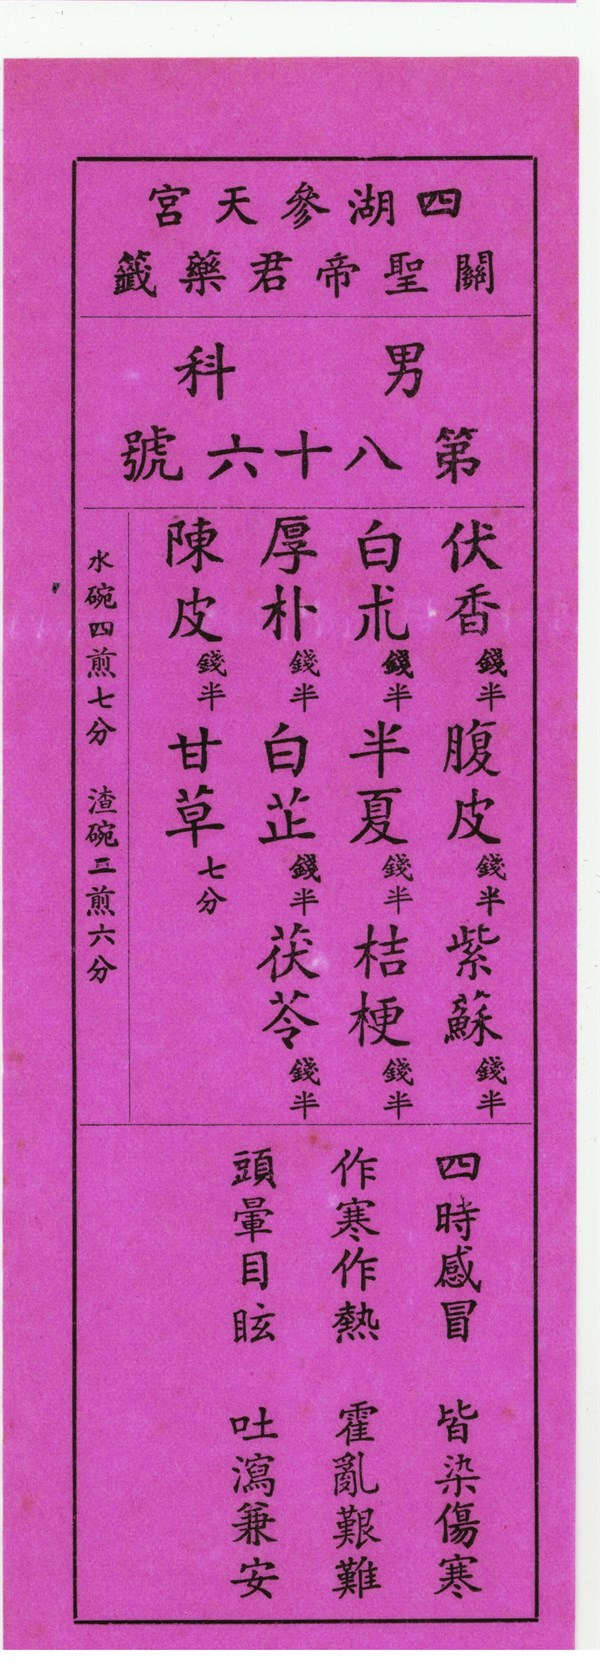 四湖參天宮
關聖帝君藥籤
男科
第八十六號
伏香錢半 腹皮錢半 紫蘇錢半
白朮錢半 半夏錢半 桔梗錢半
厚朴錢半 白芷錢半 茯苓錢半
陳皮錢半 甘草七分
水碗四煎七分 渣碗二煎六分
四時感冒 皆染傷寒
作寒作熱 霍亂艱難
頭暈目眩 吐瀉兼安